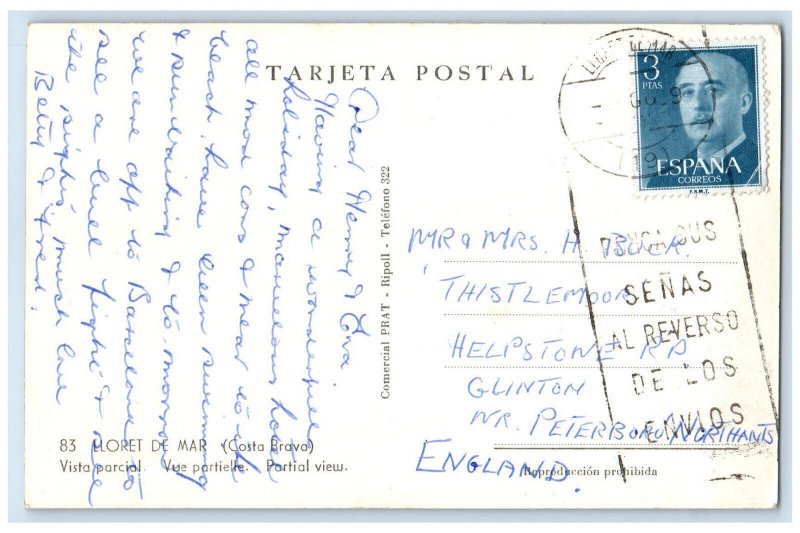 TARJETA POSTAL
Dear Henry & Eva.
Having a wonderful
holiday, marvelous hotel
all mod cons & near to the
beach, have been swimming
& sunbathing & to-morrow
we are off to Barcelona to
see a bull fight & see
the sights, much love
Betty & Fred.
Comercial PRAT - Ripoll - Teléfono 322
83 LLORET DE MAR (Costa Brava)
Vista parcial. Vue partielle. Partial view.
LLORET DE MAR
(19)
3
PTAS
ESPAÑA
CORREOS
F.N.M.T.
PONGA SUS
SEÑAS
AL REVERSO
DE LOS
ENVIOS
MR & MRS. H. BUCK.
THISTLEMOOR
HELPSTONE RD
GLINTON
NR. PETERBORO NORTHANTS
ENGLAND.
Reproducción prohibida